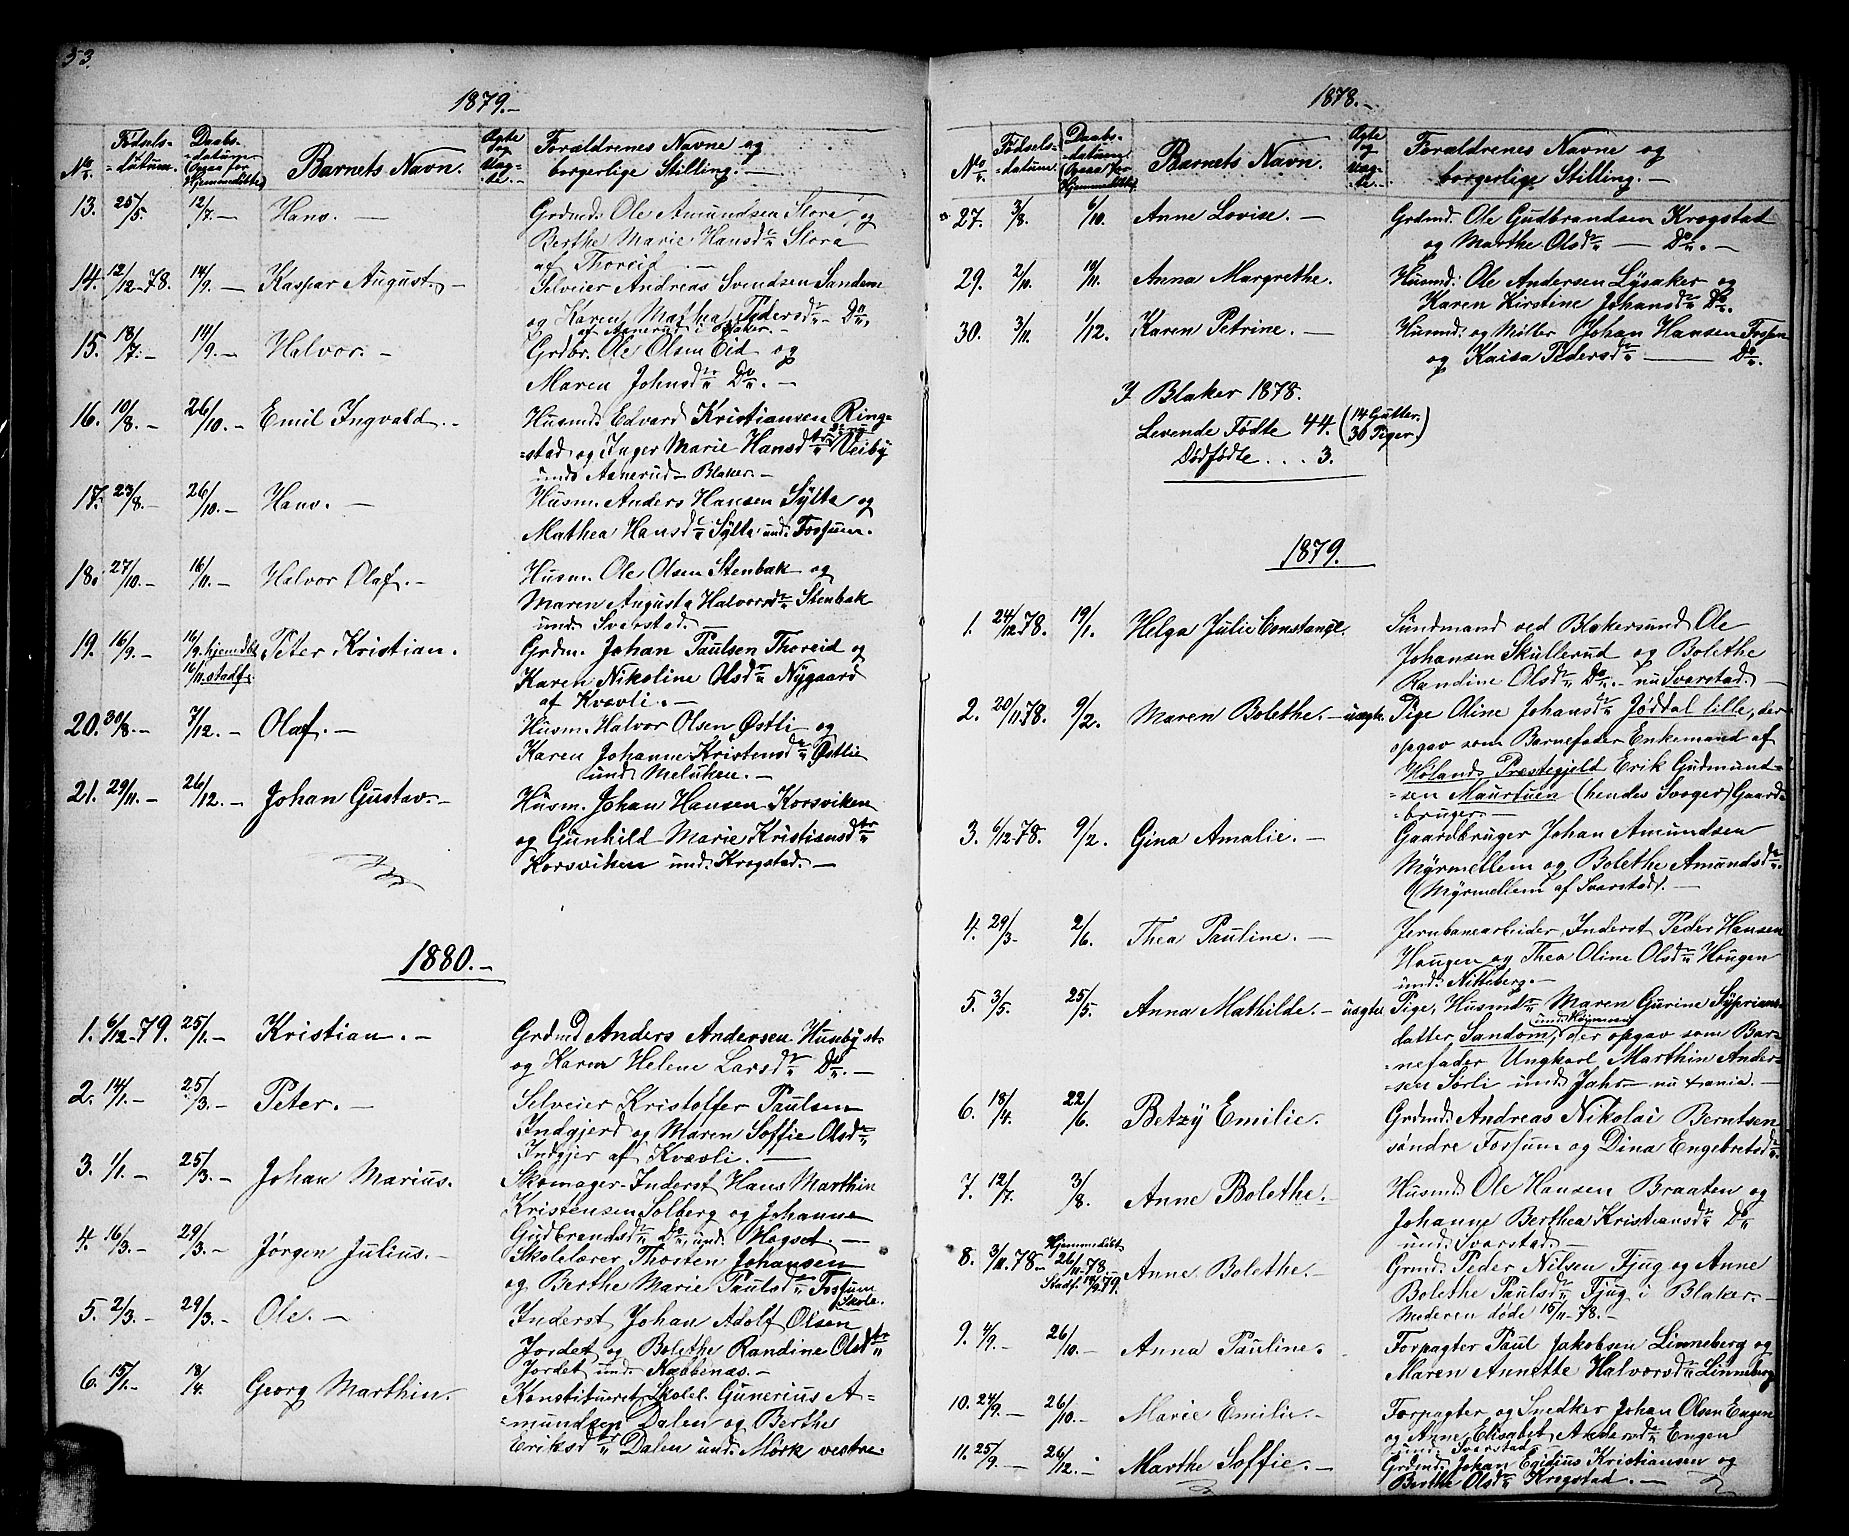 53.
1879.-
No. Fødsels-datum. Daabs-datum (Ogsaa for Hjemmedøbte) Barnets Navn. Ægte og Uægte.- Forældrenes Navne og borgerlige Stilling.-
13. 25/5 12/7.- Hans.- Grdmd. Ole Amundsen Slora, og
Berthe Marie Hansdr Slora
af Thoreid.-
14. 12/12-78. 14/9.- Kaspar August.- Selveier Andreas Svendsen Sandem
og Karen Mathea Pedersdr Do
af Aanerud i Blaker.-
15. 13/7.- 14/9.- Halvor.- Grdbr. Ole Olsen Eid og
Maren Johnsdr Do.-
16. 10/8.- 26/10.- Emil Ingvald.- Husmd. Edvard Kristiansen Ring-
stad og Inger Marie Hansdtr Veiby
und. Aanerud Blaker.-
17. 23/8.- 26/10.- Hans.- Husm. Anders Hansen Sylta og
Mathea Hansdr Sylta und. Fossum.
18. 27/10.- 16/11.- Halvor Olaf.- Husm. Ole Olsen Stenbak og
Maren Augusta Halvorsdr Stenbak
und. Svarstad.-
19. 16/9.- 16/9. hjemdbt Peter Kristian. Grdm. Johan Paulsen Thoreid og
16/11. stadf. Karen Nikoline Olsdr Nygaard
af Kvævli.-
20. 30/8.- 7/12.- Olaf.- Husm. Halvor Olsen Østli og
Karen Johanne Kristensdr Østlie
und.
21. 29/11.- 26/12.- Johan Gustav.- Husm. Johan Hansen Korsviken
og Gunhild Marie Kristiansdtr
Korsviken und. Krogstad.-
1880.-
1. 6/12-79. 25/1.- Kristian.- Grdmd Anders Andersen Huseby st.
og Karen Helene Larsdr Do.-
2. 14/1.- 25/3.- Peter.- Selveier Kristoffer Paulsen
Indgjerd og Maren Soffie Olsdr
Indgjer af Kvævli.-
3. 1/1.- 25/3.- Johan Marius. Skomager-Inderst Hans Marthin
Kristensen Solberg og Johanne
Gudbrandsdr Do, und. Hogset.-
4. 16/3.- 29/3.- Jørgen Julius.- Skolelærer Thosten Johansen
og Berthe Marie Paulsdr Fossum
Skole.
5. 2/3.- 29/3.- Ole.- Inderst Johan Adolf Olsen
Jordet og Bolethe Randine Olsdtr
Jordet und. Nabbenas.-
6. 15/1.- 18/4. Georg Marthin. Konstitueret Skolel. Gunerius A-
mundsen Dalen og Berthe
Eriksdtr Dalen und. Mork vestre.
1878.-
No. Fødsels-datum. Daabs-datum (Ogsaa for Hjemmedøbte) Barnets Navn. Ægte og Uæg-te. Forældrenes Navne og borgerlige Stilling.-
27. 3/8. 6/10. Anne Lovise.- Grdmd. Ole Gudbrandsen Krogstad
og Marthe Olsdr - Do.-
29. 2/10. 10/11. Anna Margrethe. Husmd. Ole Andersen Lysaker og
Karen Kirstine Johansdr Do.
30. 3/11. 1/12. Karen Petrine.- Husmd. og Møller Johan Hansen Fossen
og Kaisa Pedersdr - Do.
I Blaker 1878.
Levende Fødte 44. (14 Gutter. 30 Piger.)
Dødfødte . . . 3.
1879.
1. 24/12 78. 19/1. Helga Julie Constance. Sundmand ved Blakersund Ole
Johansen Skullerud og Bolethe
Randine Olsdr Do.- nu Svarstad.-
2. 20/11 78. 9/2. Maren Bolethe.- uægte. Pige Oline Johansdr Jøddal lille, der
opgav som Barnefader Enkemand af
Hølands Præstegjeld Erik Gudmund-
-sen Maurtuen (hendes Svoger) Gaard-
-bruger.-
3. 6/12 78. 9/2. Gina Amalie.- Gaardbruger Johan Amundsen
Myrmellem og Bolethe Amundsdr
(Myrmellem af Svarstad).-
4. 29/3. 2/6. Thea Pauline.- Jernbanearbeider, Inderst Peder Hansen
Hougen og Thea Oline Olsdr Hougen
und. Nitteberg.-
5. 3/5. 25/5. Anna Mathilde.- uægte Pige, Husmdr Maren Gurine Syprians-
datter Sandom, der opgav som Bar-
-nefader Ungkarl Marthin Ander-
-sen Sørli und. Jahr - nu Xrania.-
6. 18/4. 22/6. Betzy Emilie. Grdmd. Andreas Nikolai Berntsen
søndre Fossum og Dina Engebretsdr
7. 12/7. 3/8. Anne Bolethe.- Husmd. Ole Hansen Braaten og
Johanne Berthea Kristiansdr Do
und. Svarstad.-
8. 3/11 78.- Hjemmedøbt 26/11-78. Stadf. 14/9 79. Anne Bolethe.- Grmd. Peder Nilsen Fjug og Anne
Bolethe Paulsdr Fjug i Blaker.-
Moderen døde 15/11-78.-
9. 4/9.- 26/10.- Anna Pauline.- Forpagter Paul Jakobsen Linneberg og
Maren Annette Halvorsdr Linneberg
10. 24/9.- 26/10.- Marie Emilie.- Forpagter og Snedker Johan Olsen Engen
og Anne Elisabet Andersdr Engen
und. Svarstad
11. 25/9.- 26/12.- Marthe Soffie.- Grdmd. Johan Egidius Kristiansen og
Berthe Olsdr Krogstad.-